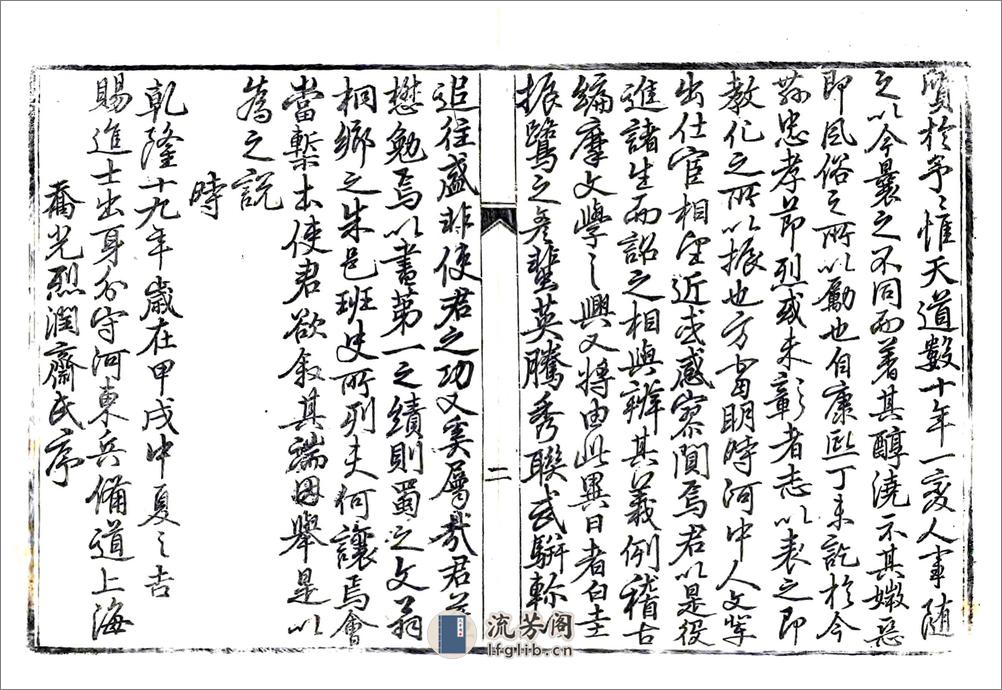 質於予予惟天道數十年一變人事隨
之以今曩之不同而著其醇澆示其媺惡
即風俗之所以勵也自康熙丁未訖於今
忠孝節烈或未彰者志以表之即
教化之所以振也方當明時河中人文
出仕宦相望近或感寥閴焉君以是役
進諸生而詔之相與辨其義例稽古
編摩文學之興又將由此異日者白圭
振鷺之彥蜚英騰秀聯武駢
追往盛非使君之功又奚屬哉君益
懋勉焉以書第一之績則蜀之文翁
桐鄉之朱邑班史所列夫何讓焉會
當槧本使君欲敘其端因舉是以
為之說
時
乾隆十九年歲在甲戌中夏之吉
賜進士出身分守河東兵備道上海
喬光烈潤齋氏序
二
流芳阁
lfglib.cn